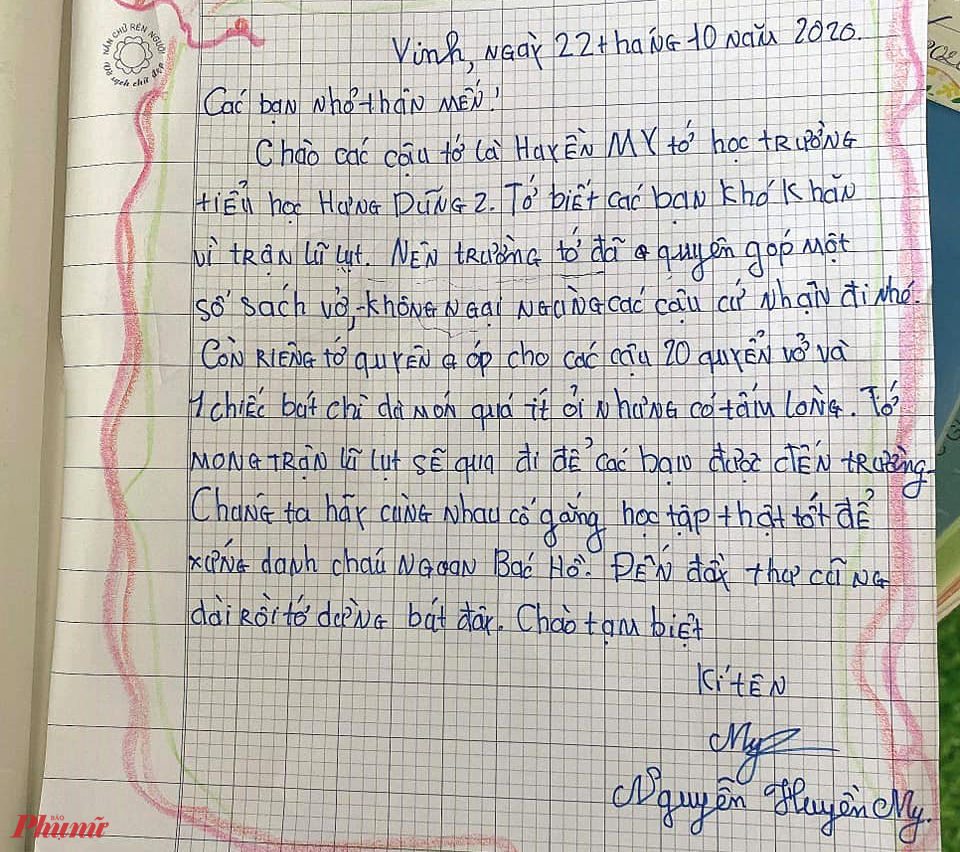 NẮN CHỮ RÈN NGƯỜI
Vở sạch chữ đẹp
Vinh, Ngày 22 tháng 10 năm 2020.
Các bạn nhỏ thân mến!
Chào các cậu tớ là Huyền My tớ học trường
tiểu học Hưng Dũng 2. Tớ biết các bạn khó khăn
vì trận lũ lụt. Nên trường tớ đã quyên góp một
số sách vở, không ngại ngùng các cậu cứ nhận đi nhé.
Còn riêng tớ quyên góp cho các cậu 20 quyển vở và
1 chiếc bút chì dù món quà ít ỏi nhưng có tấm lòng. Tớ
mong trận lũ lụt sẽ qua đi để các bạn được đến trường
Chúng ta hãy cùng nhau cố gắng học tập thật tốt để
xứng danh cháu ngoan Bác Hồ. Đến đây thư cũng
dài rồi tớ dừng bút đây. Chào tạm biệt
Kí tên
My
Nguyễn Huyền My.
BÁO
Phụ nữ